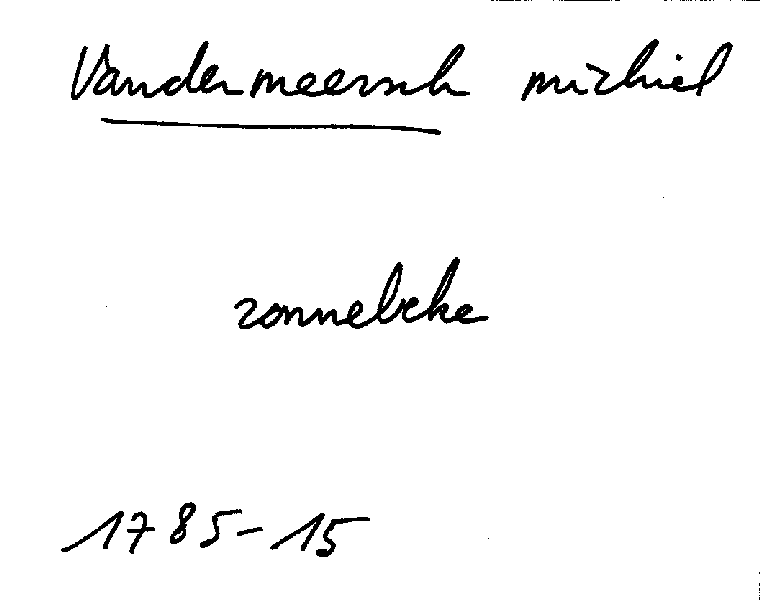 Vandermeersch michiel
zonnebeke
1785-15